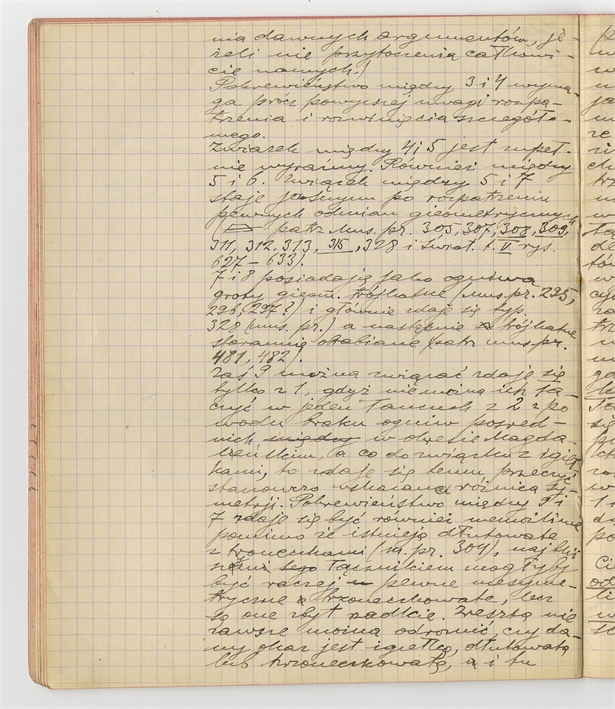 nia dawnych argumentów, je-
żeli nie przytoczenia całkowi-
cie nowych.)
Pokrewieństwo między 3 i 4 wyma-
ga prócz powyższej uwagi rozpa-
trzenia i rozwinięcia szczegóło-
wego.
Związek między 4 i 5 jest zupeł-
nie wyraźny. Również między
5 i 6. Związek między 5 i 7
staje jasnym po rozpatrzeniu
pewnych odmian gieometrycznych
(patrz Mus. pr. 305, 307, 308, 309,
311, 312, 313, 315, 328 i Świat. t. V rys.
627 – 633).
7 i 8 posiadają jako ogniwa
groty gieom. trójkątne (Mus. pr. 295,
296, (297?) i głównie zdaje się typ.
328 (mus. pr.) a następnie trójkątne
starannie obrabiane (patrz mus. pr.
481, 482).
Zaś 9 można związać zdaje się
tylko z 1, gdyż nie można ich łą-
czyć w jeden łańcuch z 2 z po
wodu braku ogniw pośred-
nich między w okresie Magda-
leńskim, a co do związku z igieł
kami, to zdaje się temu przeczyć
stanowczo wskazana różnica sy-
metrji. Pokrewieństwo między 9 i
7 zdaje się być również niemożliwe
pomimo że istnieją dłutowate
z trzoneczkami (m. pr. 304), najbliż
szemi tego łącznikiem mogłyby
być raczej pewne niesyme-
tryczne trzoneczkowate, lecz
są one zbyt rzadkie. Zresztą nie
zawsze można odróżnić, czy da-
ny okaz jest igiełką, dłutowatą
lub trzoneczkowatą, i tu